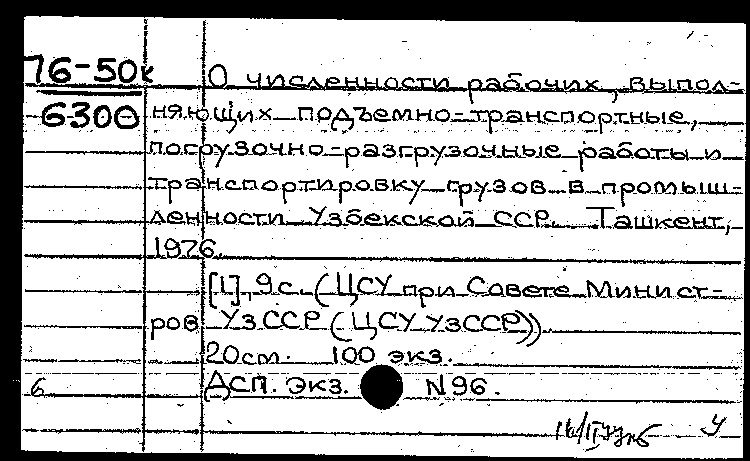 76-50к
6300
О численности рабочих, выпол-
няющих подъемно-транспортные,
погрузочно-разгрузочные работы и
транспортировку грузов в промыш-
ленности Узбекской ССР. Ташкент,
1976.
[1], 9 с. (ЦСУ при Совете Минист-
ров УзССР (ЦСУ УзССР)).
20см. 100 экз.
6 Дсп. Экз. N 96.
У